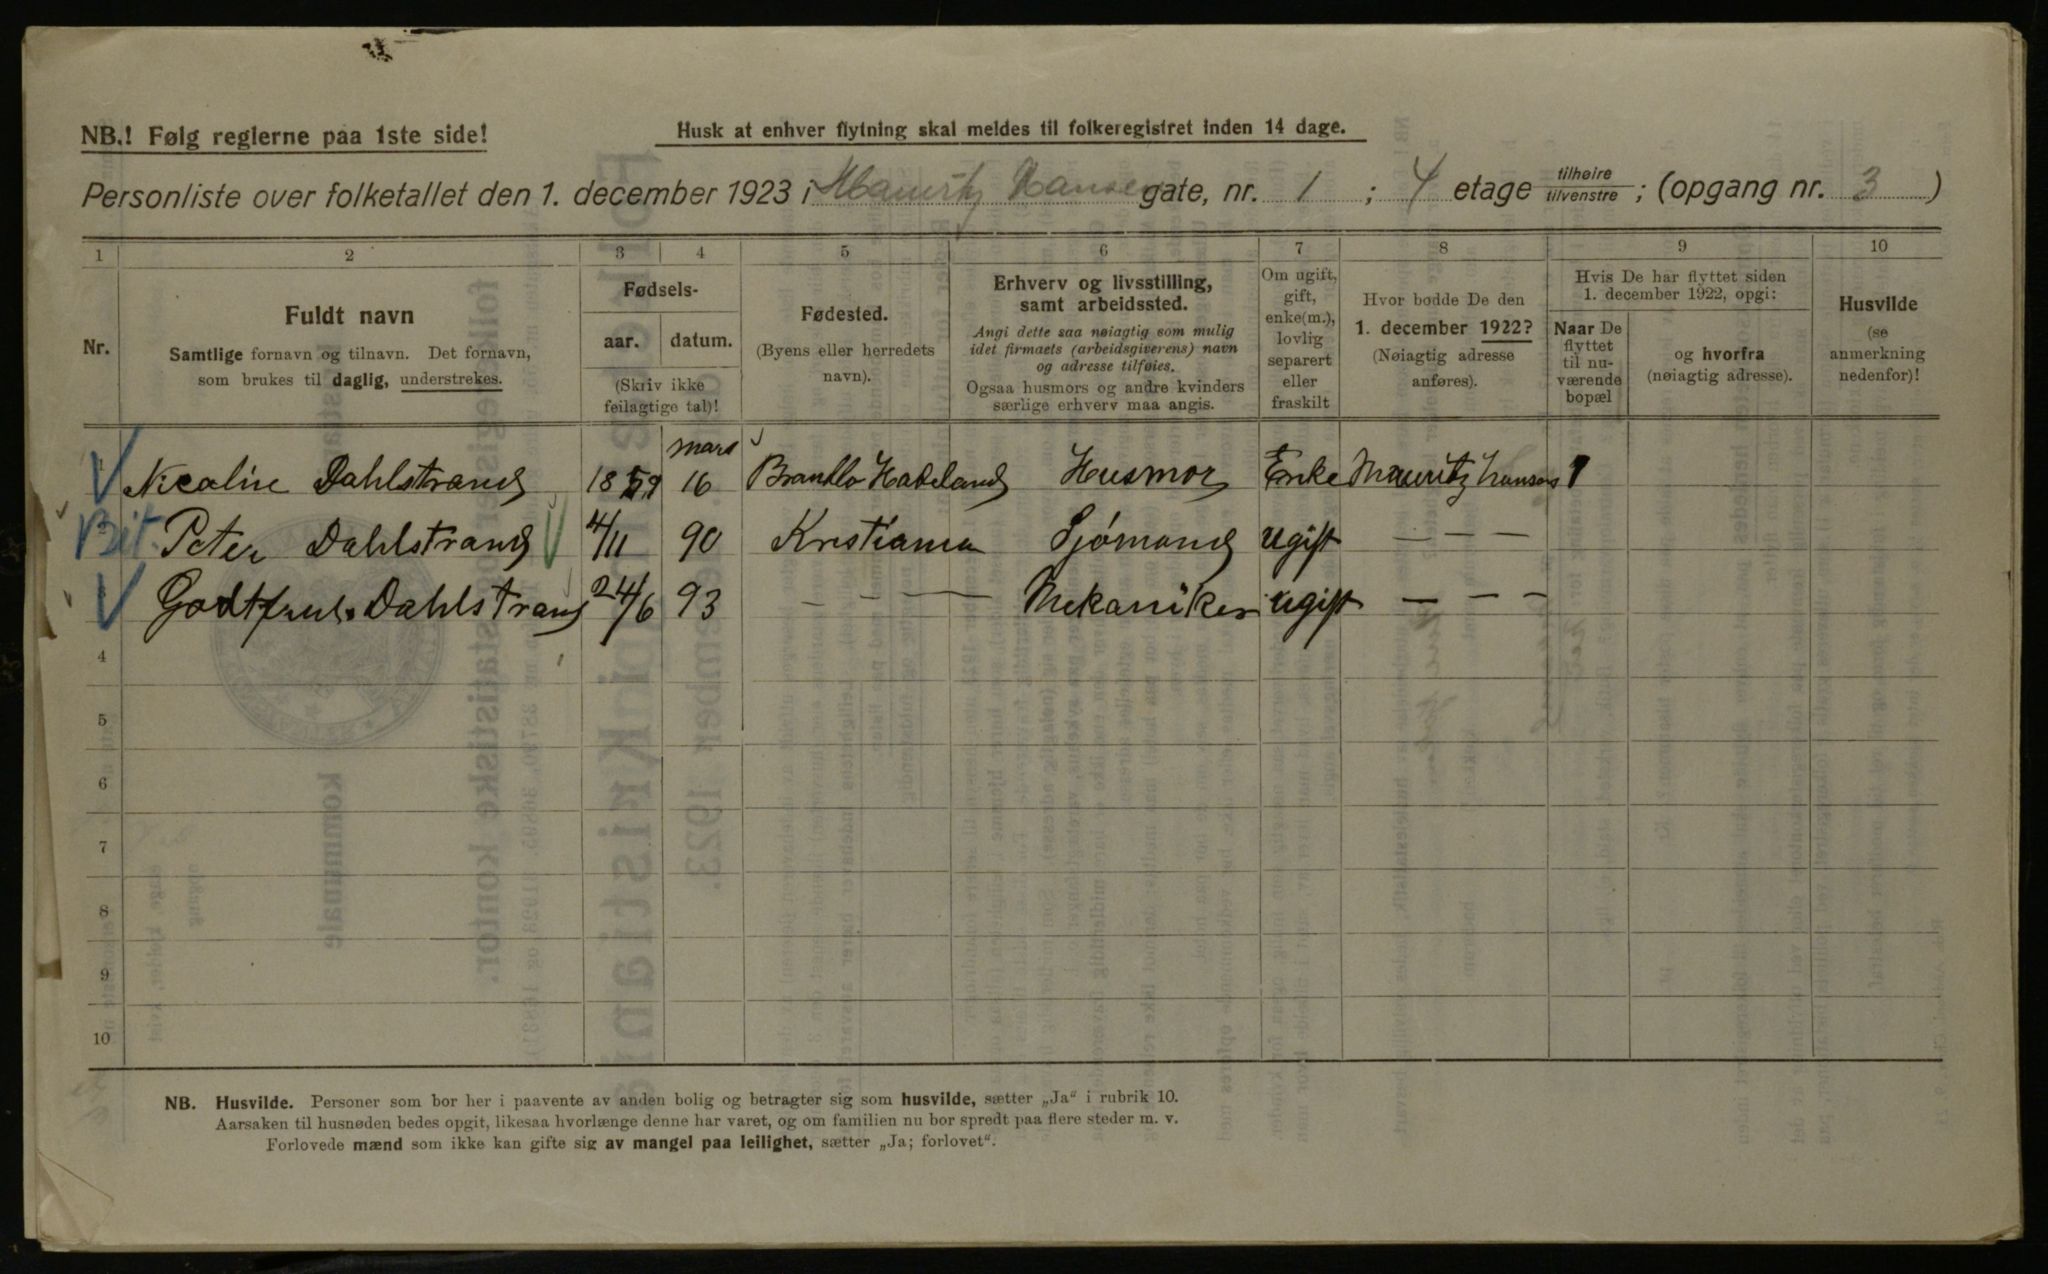 NB.! Følg reglerne paa 1ste side!
Husk at enhver flytning skal meldes til folkeregistret inden 14 dage.
Personliste over folketallet den 1. december 1923 i Mauritz Hansens gate, nr. 1 ; 4 etage tilhøire tilvenstre ; (opgang nr. 3 )
1 2 3 4 5 6 7 8 9 10
Nr.
Fuldt navn
Samtlige fornavn og tilnavn. Det fornavn,
som brukes til daglig, understrekes.
Fødsels-
aar. datum.
(Skriv ikke
feilagtige tal)!
Fødested.
(Byens eller herredets
navn).
Erhverv og livsstilling,
samt arbeidssted.
Angi dette saa nøiagtig som mulig
idet firmaets (arbeidsgiverens) navn
og adresse tilføies.
Ogsaa husmors og andre kvinders
særlige erhverv maa angis.
Om ugift,
gift,
enke(m.),
lovlig
separert
eller
fraskilt
Hvor bodde De den
1. december 1922?
(Nøiagtig adresse
anføres).
Hvis De har flyttet siden
1. december 1922, opgi:
Naar De
flyttet
til nu-
værende
bopæl
og hvorfra
(nøiagtig adresse).
Husvilde
(se
anmerkning
nedenfor)!
V Nicoline Dahlstrand 1859 mars 16 Brandbo Hadeland Husmor Enke Mauritz Hansens 1
Bit. Peter Dahlstrand V 4/11 90 Kristiania Sjømand ugift — — —
V Dahlstrand 24/6 93 — — — — Mekaniker ugift — — —
4
5
6
7
8
9
10
NB. Husvilde. Personer som bor her i paavente av anden bolig og betragter sig som husvilde, sætter „Ja" i rubrik 10.
Aarsaken til husnøden bedes opgit, likesaa hvorlænge denne har varet, og om familien nu bor spredt paa flere steder m. v.
Forlovede mænd som ikke kan gifte sig av mangel paa leilighet, sætter „Ja; forlovet".